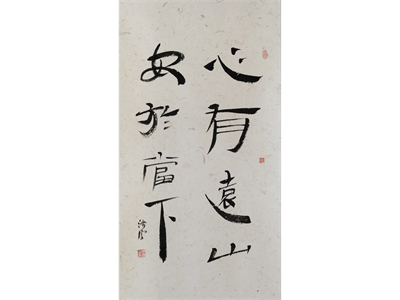 心有遠山
安於當下